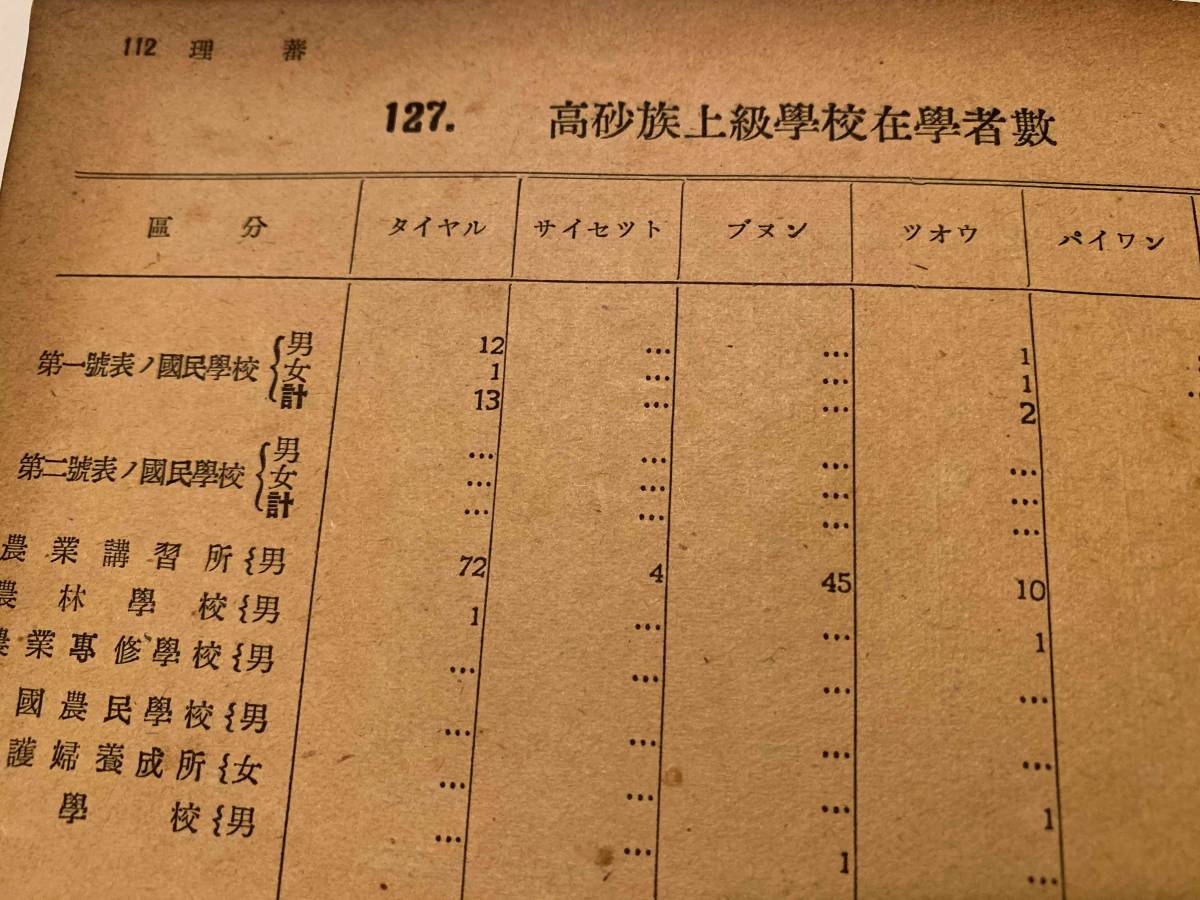 112 理 蕃
127. 高砂族上級學校在學者數
區 分 タイヤル サイセツト ブヌン ツオウ パイワン
第一號表ノ國民學校 { 男 12 … … 1
女 1 … … 1
計 13 … … 2
第二號表ノ國民學校 { 男 … … … …
女 … … … …
計 … … … …
農業講習所 { 男 72 4 45 10
農林學校 { 男 1 … … 1
農業專修學校 { 男 … … … …
國農民學校 { 男 … … … …
護婦養成所 { 女 … … … 1
學校 { 男 … … 1 …